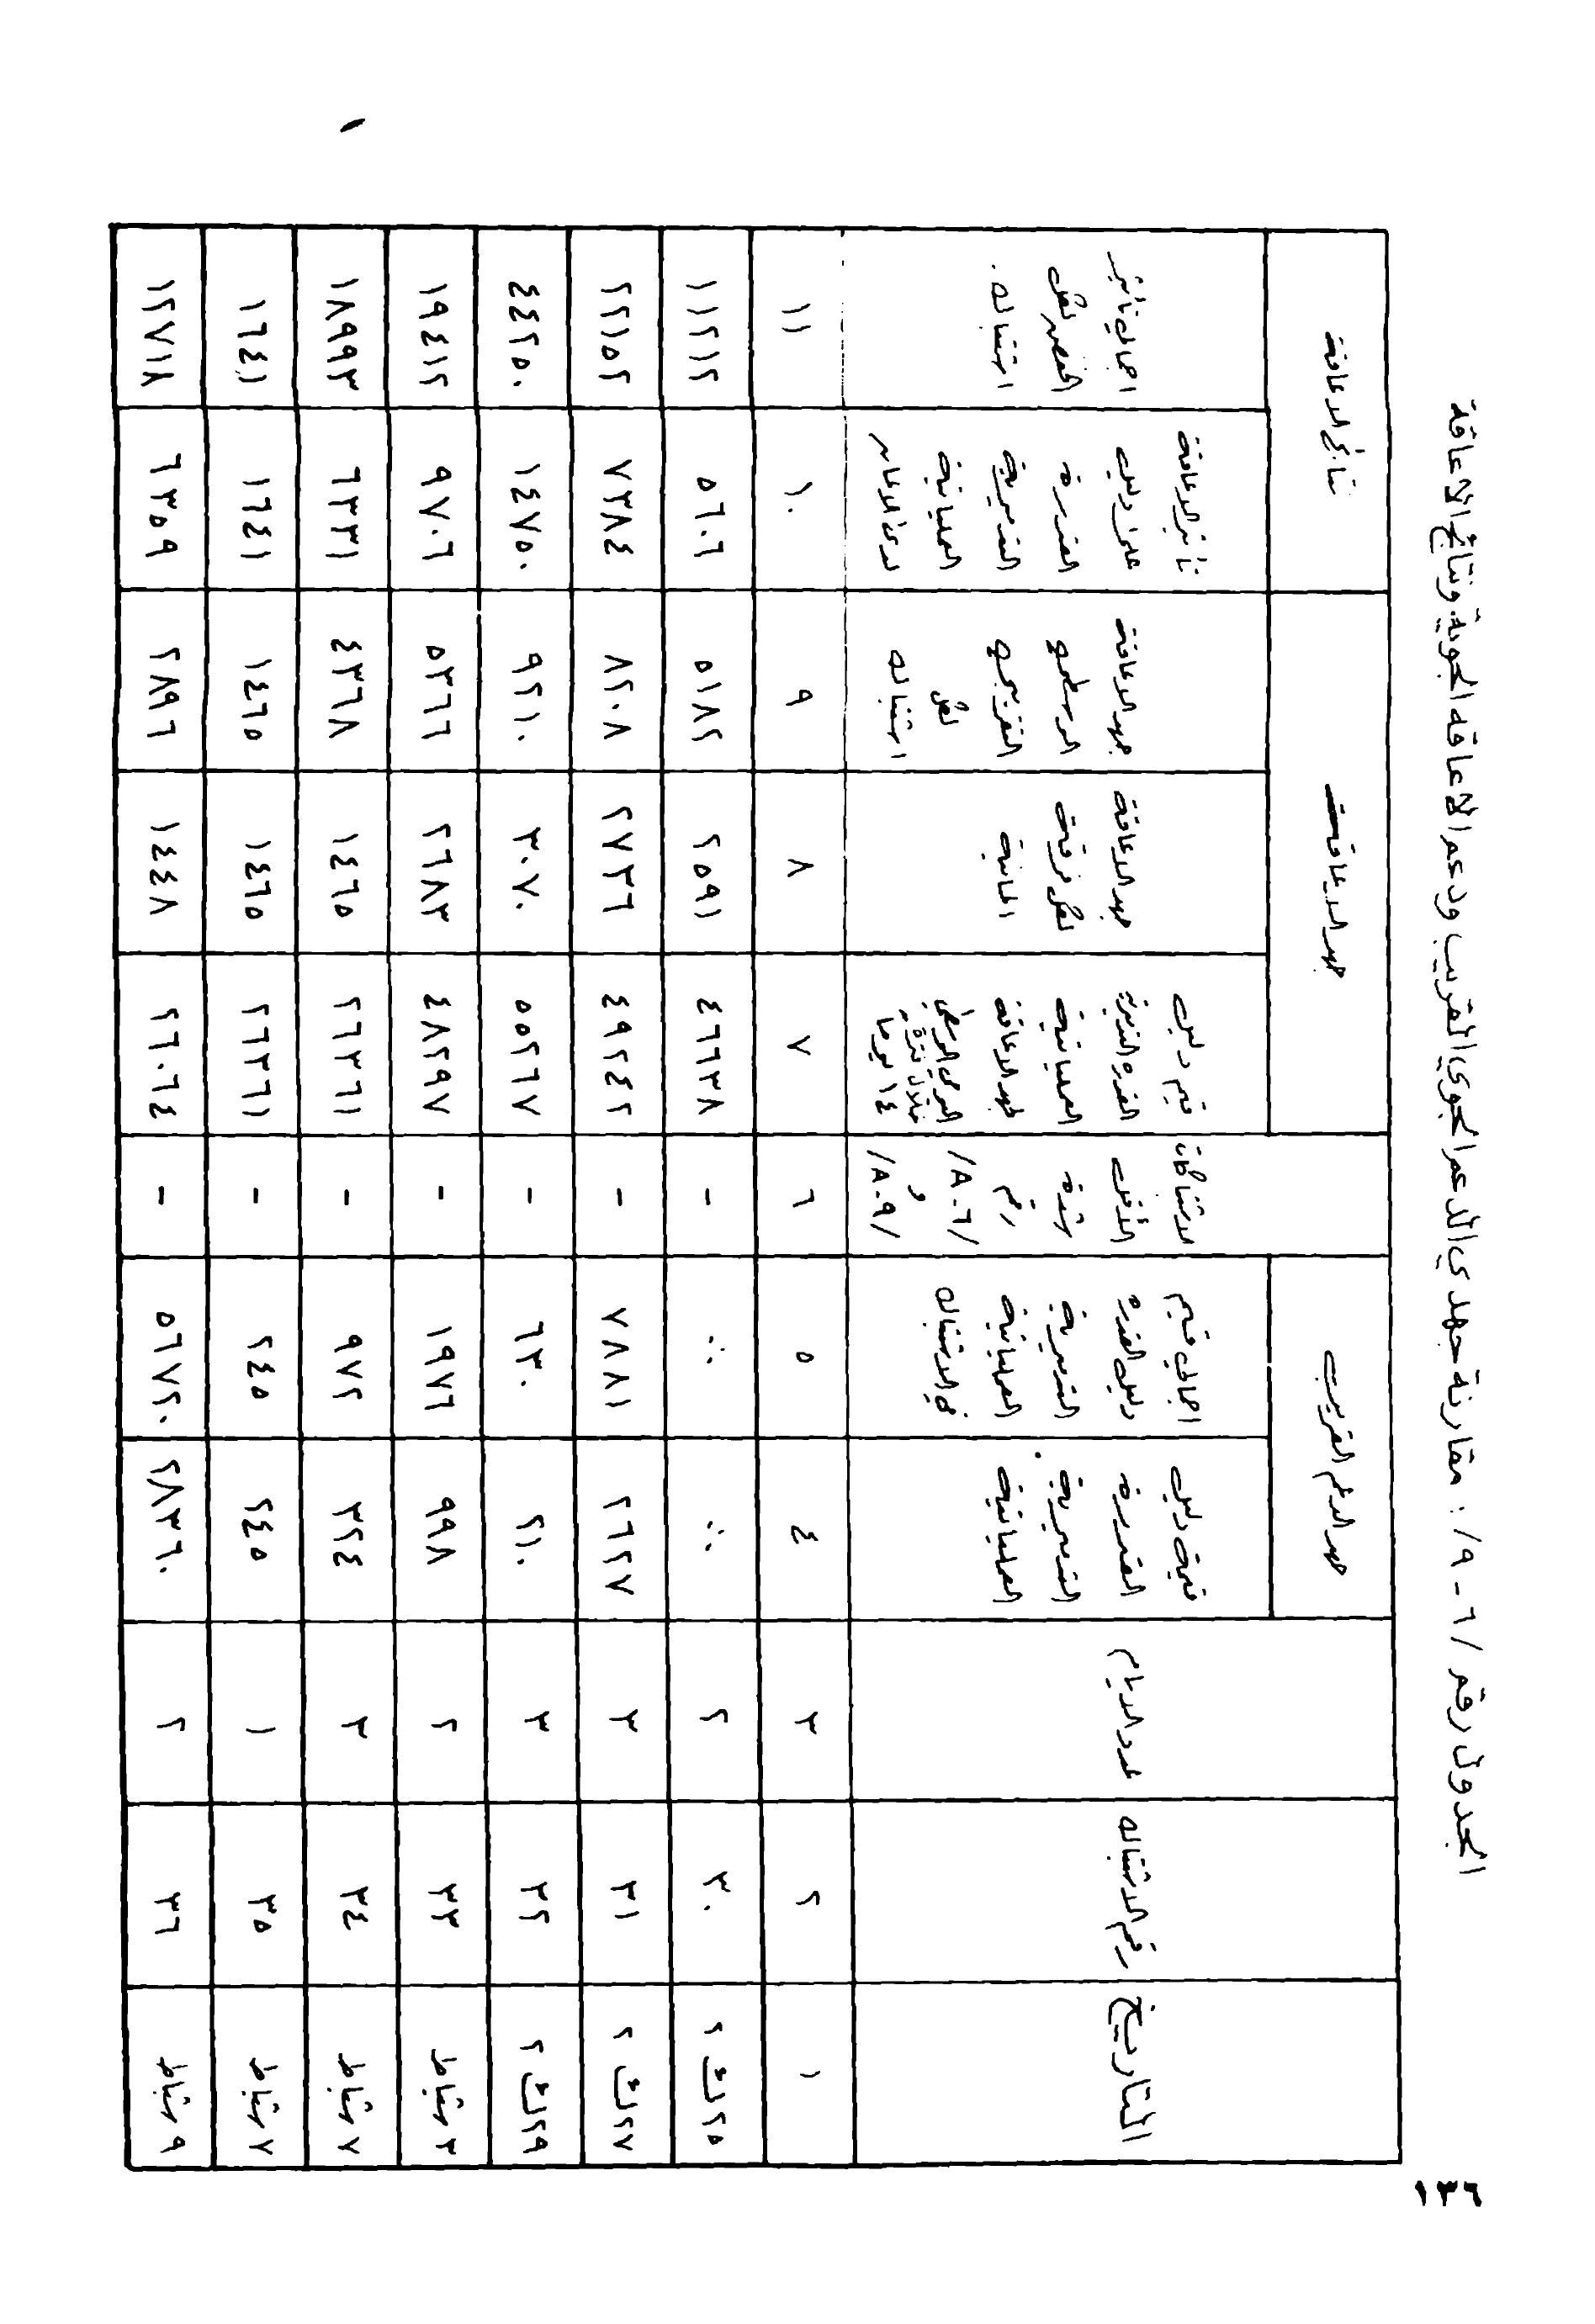 ١٣٦
الجدول رقم /٦-٩/: مقارنة جهدي الدعم الجوي القريب ودعم الاعاقه الجوية ونتائج الاعاقة
جهد الدعم القريب جهد الاعاقة نتائج الاعاقة
التاريخ
رقم الاشتباك
عدد الايام
قيمة دليل
القدرة
التدميرية
العملياتية
اجمالي قيم
دليل القدره
التدميرية
العملياتية
في الاشتباك
الاشتباكات
الأخف
شدة
رقم
/A-٦/
و
/A-٩/
قيم دليل
القدره التدميرية
العملياتية
لجهد الاعاقة
اليومي الوسطي
خلال فترة
١٤ يوما
جهد الاعاقة
لكل فرقة
المانية
جهد الاعاقة
الوسطي
التقريبي
لكل
اشتباك
تأثير الاعاقة
على دليل
القدرة
التدميرية
العملياتية
لدى الالمان
اجمالي تأثير
الخفض لكل
اشتباك.
١ ٢ ٣ ٤ ٥ ٦ ٧ ٨ ٩ ١٠ ١١
٢٥ ك ٢ ٣٠ ٢ ٠٠ ٠٠ - ٤٦٦٣٨ ٢٥٩١ ٥١٨٢ ٥٦٠٦ ١١٢١٢
٢٧ ك ٢ ٣١ ٣ ٢٦٢٧ ٧٨٨١ - ٤٩٢٤٢ ٢٧٣٦ ٨٢٠٨ ٧٣٨٤ ٢٢١٥٢
٢٩ ك ٢ ٣٢ ٣ ٢١٠ ٦٣٠ - ٥٥٢٦٧ ٣٠٧٠ ٩٢١٠ ١٤٧٥٠ ٤٤٢٥٠
٣ شباط ٣٣ ٢ ٩٩٨ ١٩٧٦ - ٤٨٢٩٧ ٢٦٨٣ ٥٣٦٦ ٩٧٠٦ ١٩٤١٢
٧ شباط ٣٤ ٣ ٣٢٤ ٩٧٢ - ٢٦٣٦١ ١٤٦٥ ٤٣٦٨ ٦٣٣١ ١٨٩٩٣
٧ شباط ٣٥ ١ ٢٤٥ ٢٤٥ - ٢٦٣٦١ ١٤٦٥ ١٤٦٥ ١٦٤١ ١٦٤١
٩ شباط ٣٦ ٢ ٢٨٣٦٠ ٥٦٧٢٠ - ٢٦٠٦٤ ١٤٤٨ ٢٨٩٦ ٦٣٥٩ ١٢٧١٨